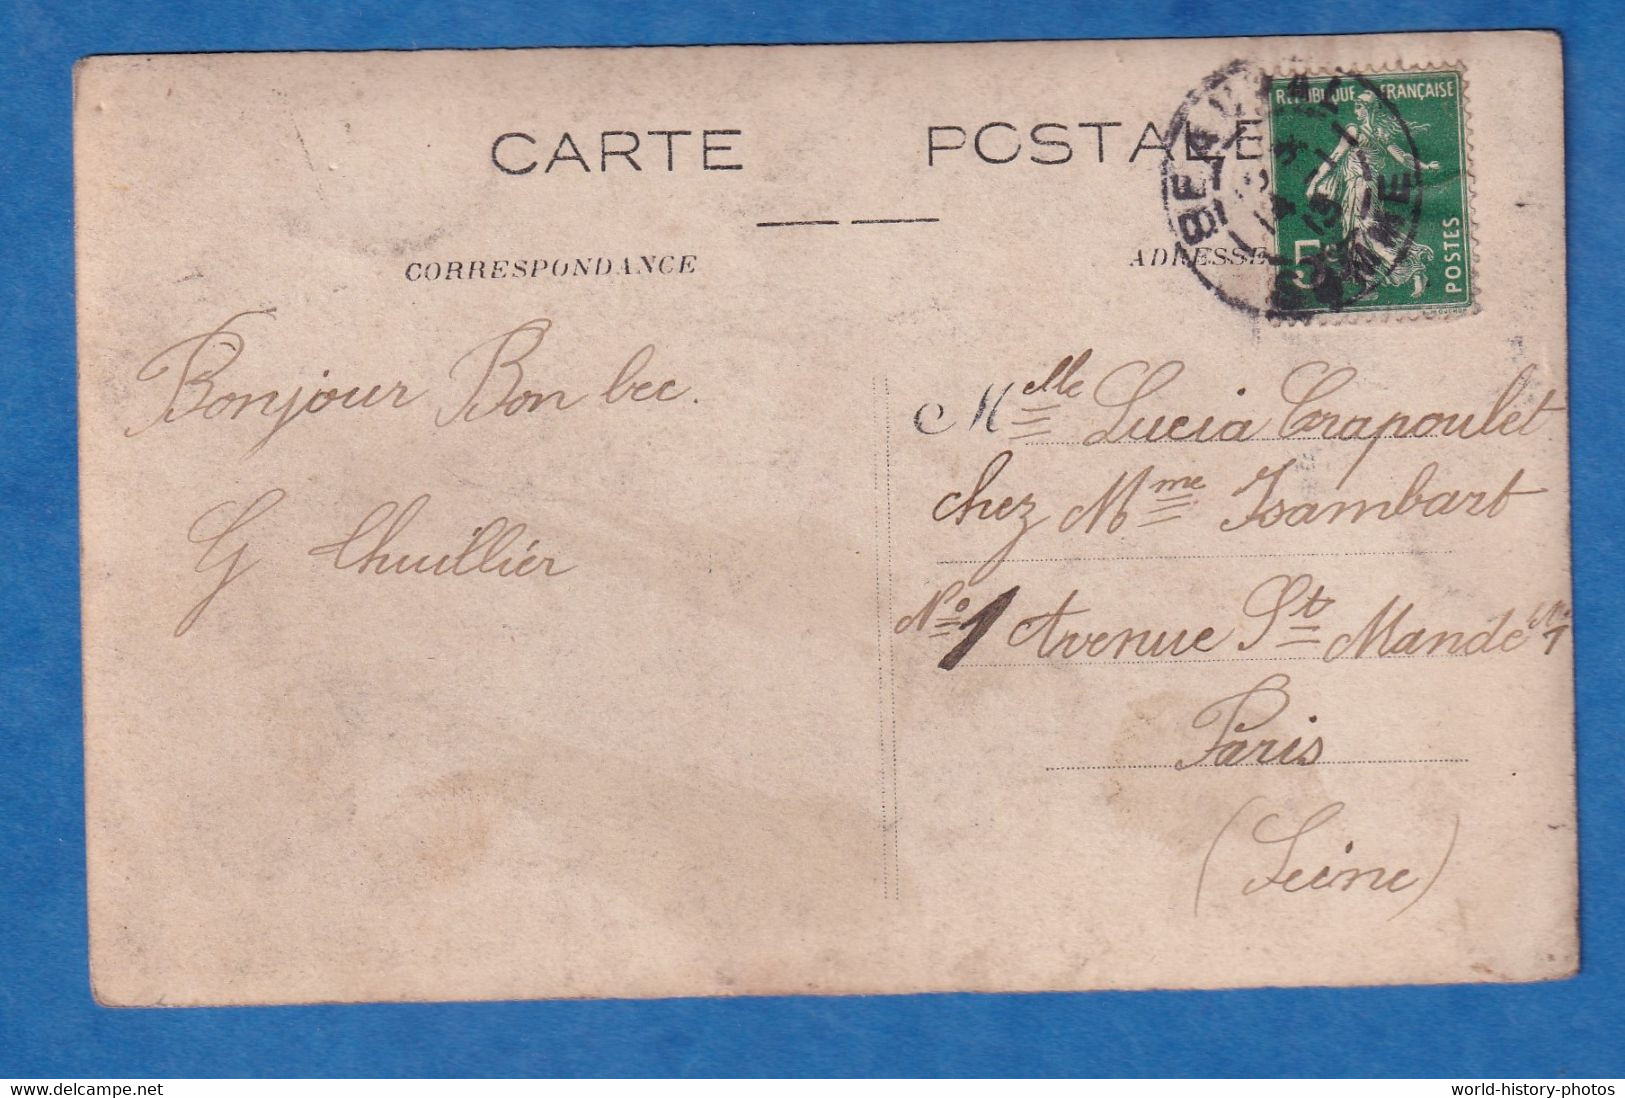 CARTE POSTALE
CORRESPONDANCE
ADRESSE
RÉPUBLIQUE FRANÇAISE
5c
POSTES
Bonjour Bon bec.
G Lhuillier
Melle Lucia Crapoulet
chez Mme Isambart
No 1 Avenue St Mandé
Paris
(Seine)
delcampe.net
world-history-photos